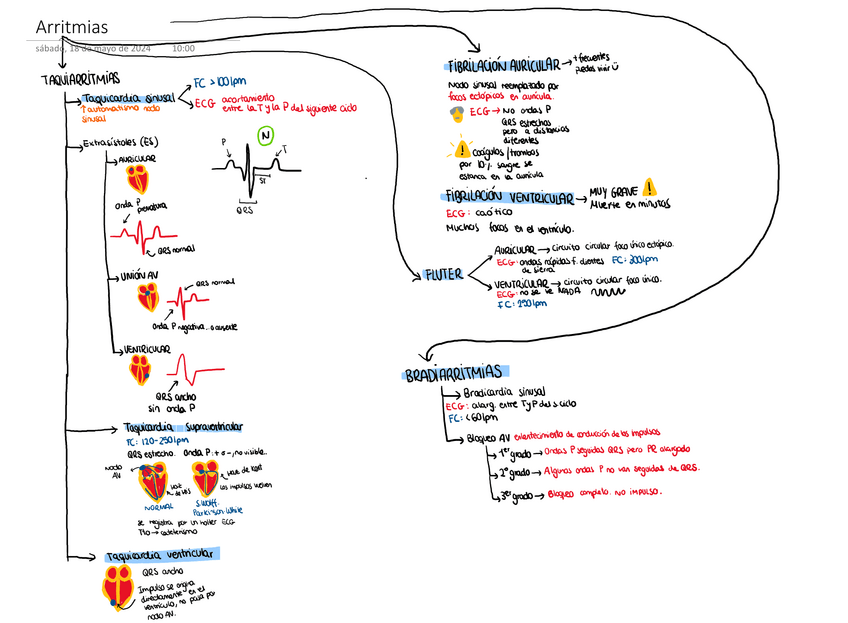 Arritmias
sábado, 18 de mayo de 2024 10:00
TAQUIARRITMIAS
Taquicardia sinusal
↑ automatismo nodo
sinusal
FC > 100 lpm
ECG acortamiento
entre la T y la P del siguiente ciclo
Extrasístoles (ES)
AURICULAR
onda P
prematura
QRS normal
N
P
T
ST
QRS
UNIÓN AV
QRS normal
Onda P negativa o ausente
VENTRICULAR
QRS ancho
sin onda P
Taquicardia Supraventricular
FC: 120-250 lpm
QRS estrecho. Onda P: + o -, no visible.
nodo
AV
haz
de His
NORMAL
haz de Kent
los impulsos vuelven
S. Wolff
Parkinson White
se registra por un holter ECG
Tto → cateterismo
Taquicardia ventricular
QRS ancho
Impulso se origina
directamente en el
ventrículo, no pasa por
nodo AV.
FIBRILACIÓN AURICULAR → + frecuentes
puedes vivir
Nodo sinusal reemplazado por
focos ectópicos en aurícula.
ECG → No ondas P
QRS estrechos
pero a distancias
diferentes
coágulos/trombos
por 10% sangre se
estanca en la aurícula
FIBRILACIÓN VENTRICULAR → MUY GRAVE
Muerte en minutos
ECG: caótico
Muchos focos en el ventrículo.
FLUTER
AURICULAR → circuito circular foco único ectópico.
ECG: ondas rápidas f. dientes FC: 300 lpm
de sierra
VENTRICULAR → circuito circular foco único.
ECG: no se ve NADA
FC: 250 lpm
BRADIARRITMIAS
Bradicardia sinusal
ECG: alarg. entre T y P del s. ciclo
FC: < 60 lpm
Bloqueo AV enlentecimiento de conducción de los impulsos
1er grado → Ondas P seguidas QRS pero PR alargado
2º grado → Algunas ondas P no van seguidas de QRS.
3er grado → Bloqueo completo. NO IMPULSO.